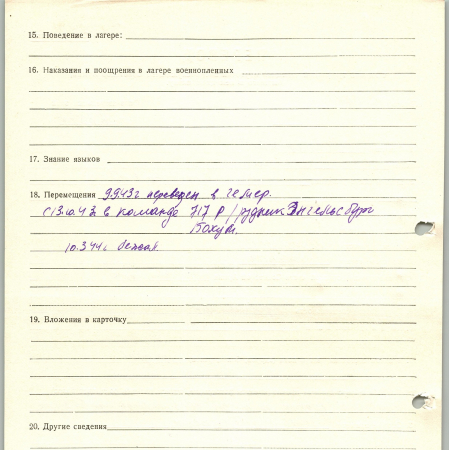 15. Поведение в лагере:
16. Наказания и поощрения в лагере военнопленных
17. Знание языков
18. Перемещения 9.9.43г переведен в Гемер.
с 13.10.43г в команде 717 Р /рудник Энгельсбург
Бохум.
10.3.44г бежал.
19. Вложения в карточку
20. Другие сведения